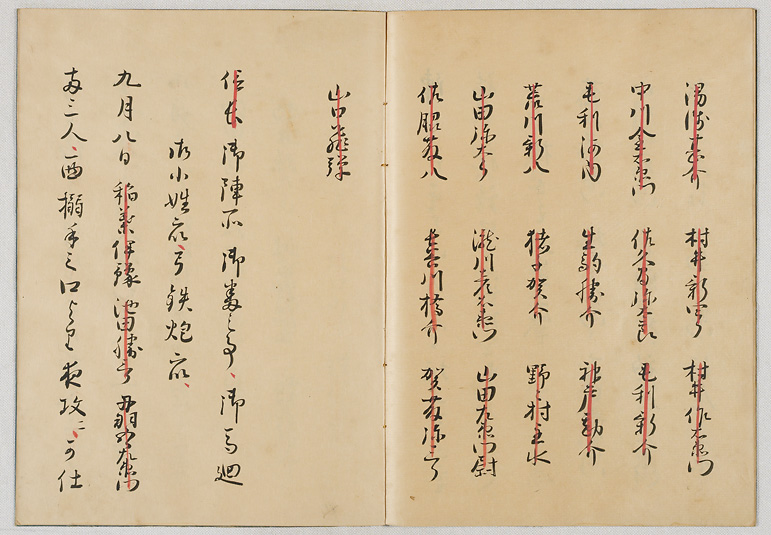 湯浅甚介 村井新四郎 村井作右衛門
中川金右衛門 佐久間弥太郎 毛利新介
毛利河内 生駒勝介 神戸勘介
荒川新八 猪子賀介 野々村主水
山田弥太郎 瀧川彦右衛門 山田左衛門尉
佐脇藤八 長谷川橋介 賀藤弥三郎
山口飛弾
信長御陣所御番之事、御馬廻
御小姓衆弓鉄炮衆、
九月八日稲葉伊豫池田勝三郎丹羽五郎左衛門
両三人ニ而搦手之口より夜攻ニ可仕